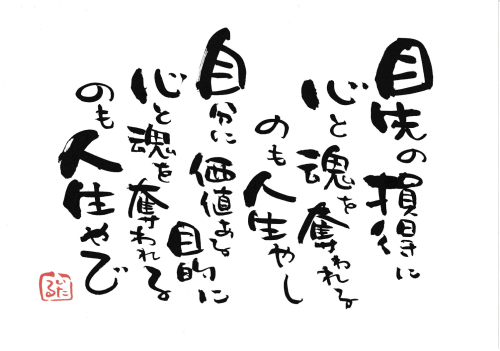 目先の損得に
心と魂を奪われる
のも人生やし
自分に価値ある目的に
心と魂を奪われる
のも人生やで